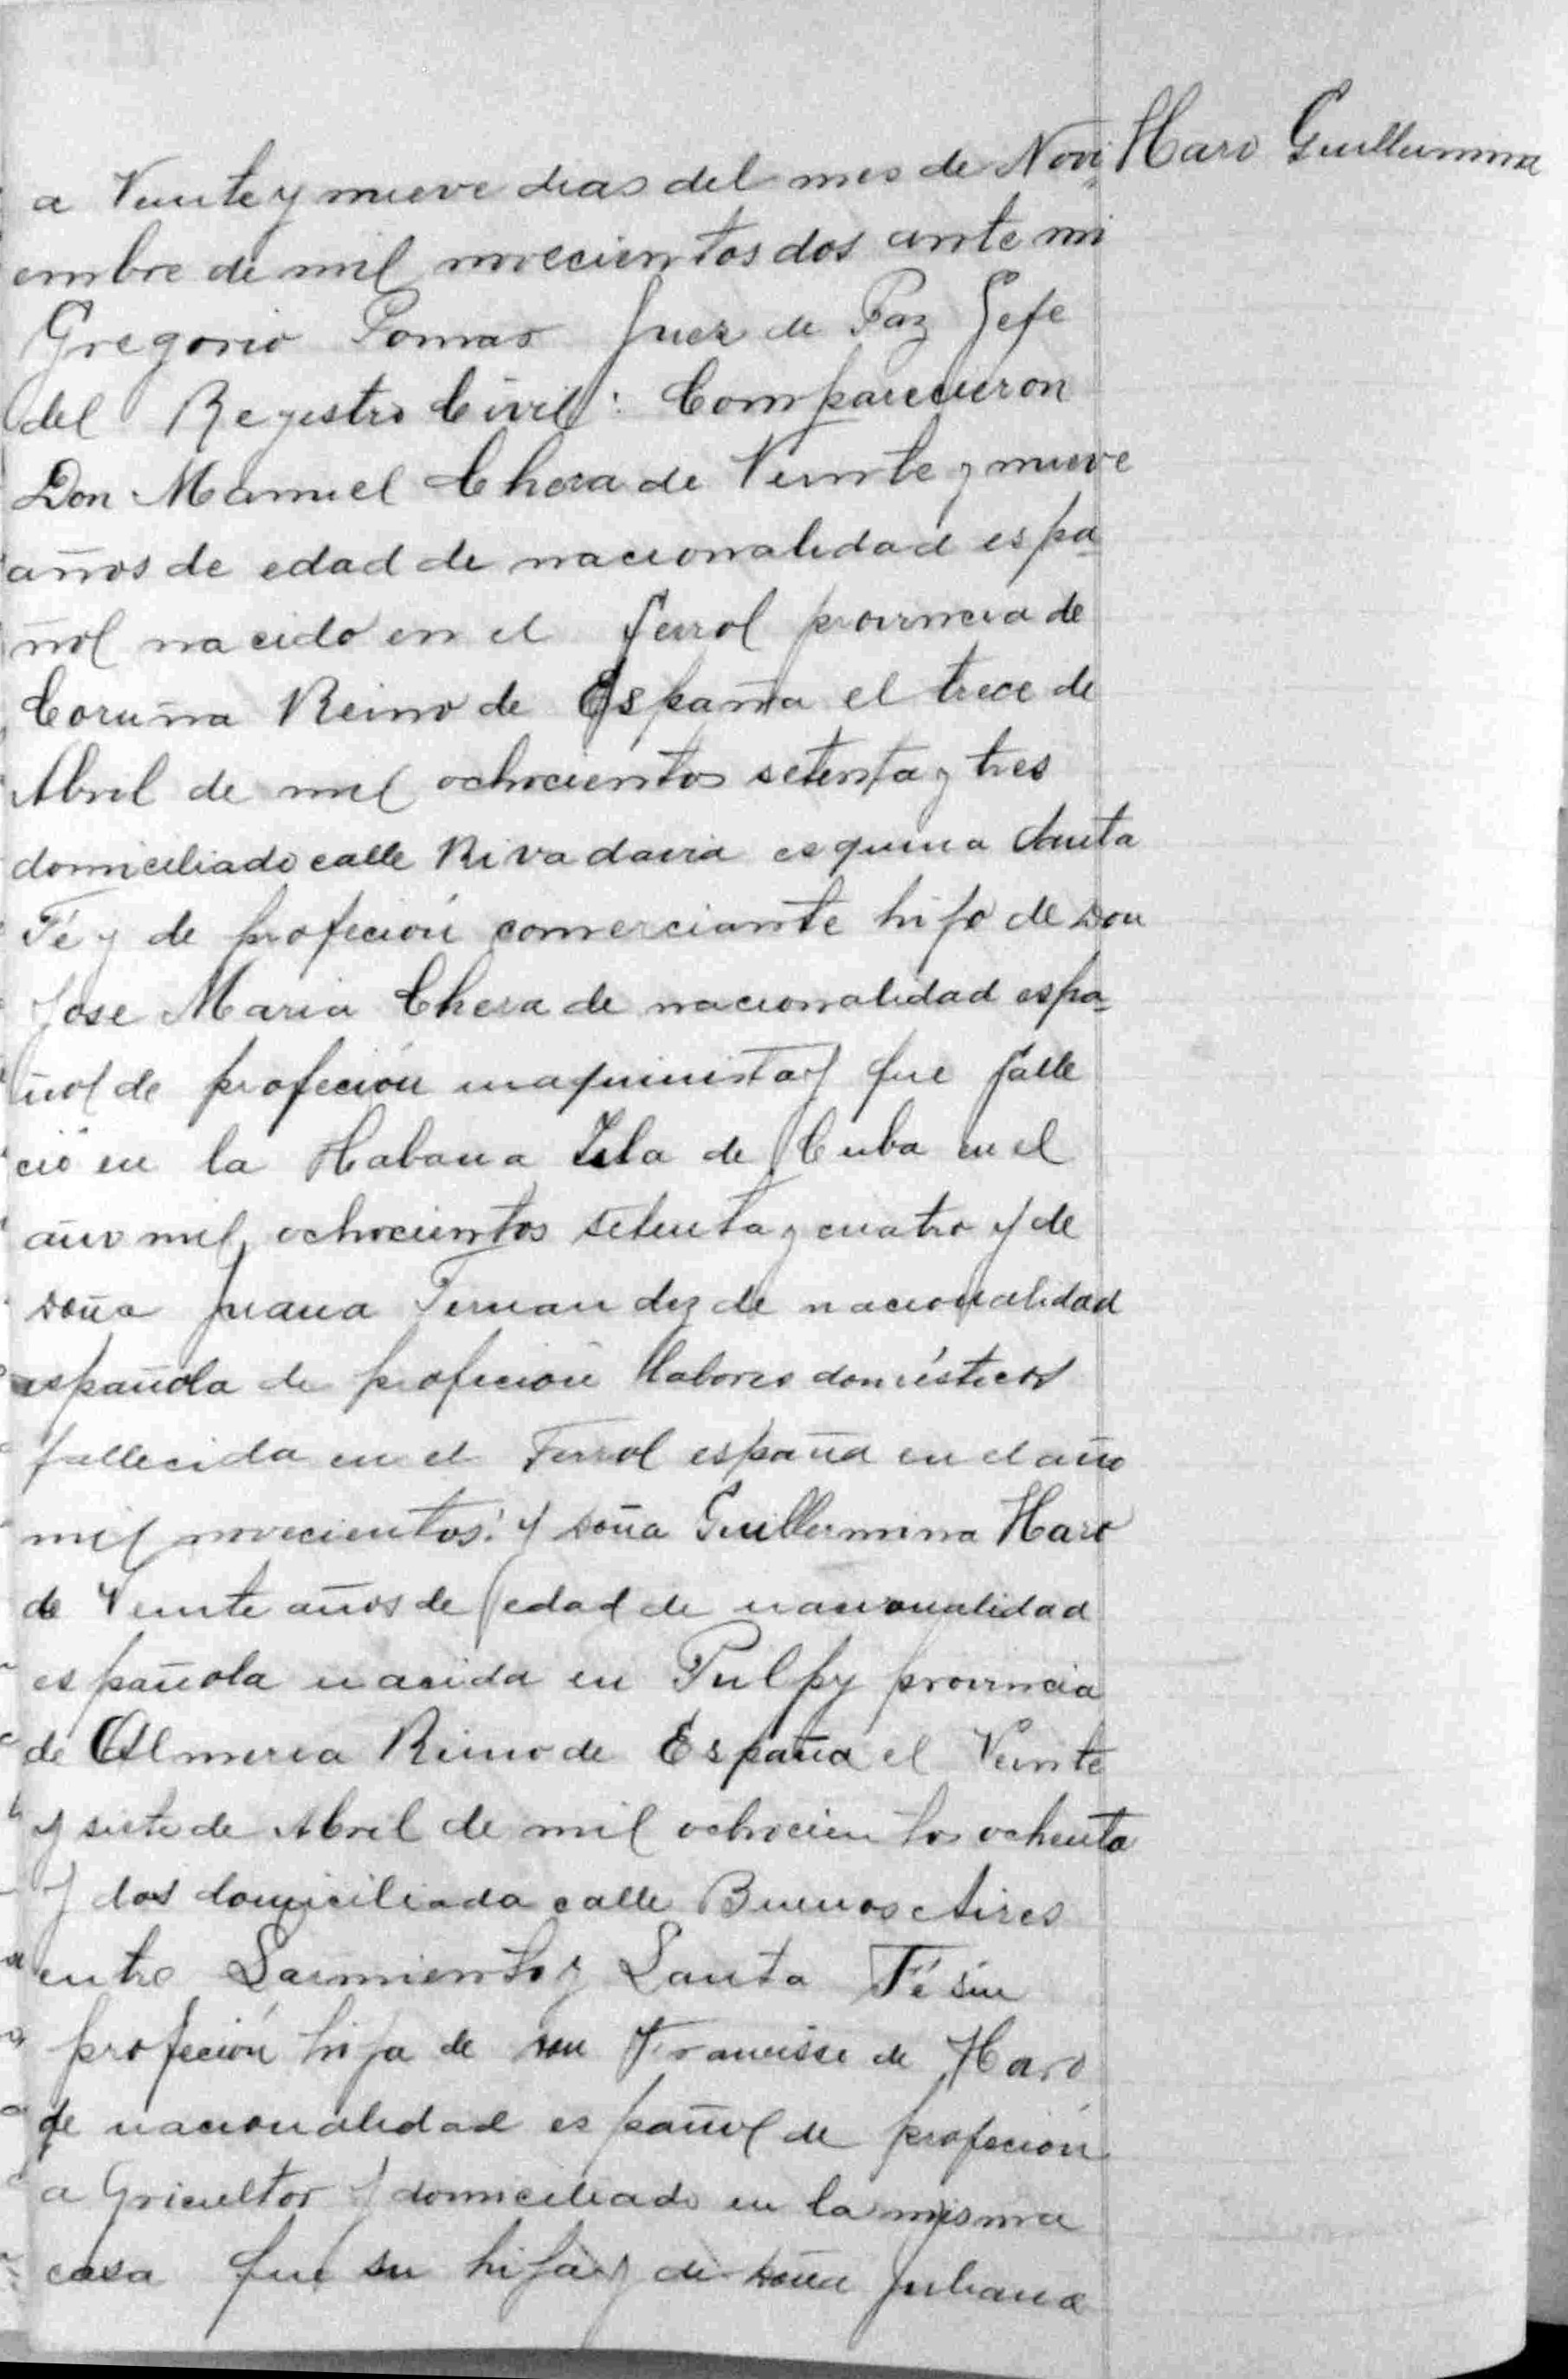 Haro Guillermina
a Veinte y nueve dias del mes de Novi-
embre de mil novecientos dos ante mi
Gregorio Pomar Juez de Paz Gefe
del Registro Civil: Comparecieron
Don Manuel Chera de Veinte y nueve
años de edad de nacionalidad espa-
ñol nacido en el ferrol provincia de
Coruña Reino de España el trece de
Abril de mil ochocientos setenta y tres
domiciliado calle Rivadavia esquina Santa
Fé y de profeción comerciante hijo de Don
Jose Maria Chera de nacionalidad espa-
ñol de profeción maquinista y que falle
ció en la Habana Isla de Cuba en el
año mil ochocientos setenta y cuatro y de
Doña Juana Fernandez de nacionalidad
española de profeción labores domésticos
fallecida en el Ferrol españa en el año
mil novecientos: y Doña Guillermina Haro
de Veinte años de edad de nacionalidad
española nacida en Pulpy provincia
de Almeria Reino de España el Veinte
y siete de Abril de mil ochocientos ochenta
y dos domiciliada calle Buenos Aires
entre Sarmiento y Santa Fé sin
profeción hija de Don Francisco de Haro
de nacionalidad español de profeción
agricultor y domiciliado en la misma
casa que su hija y de Doña Juliana